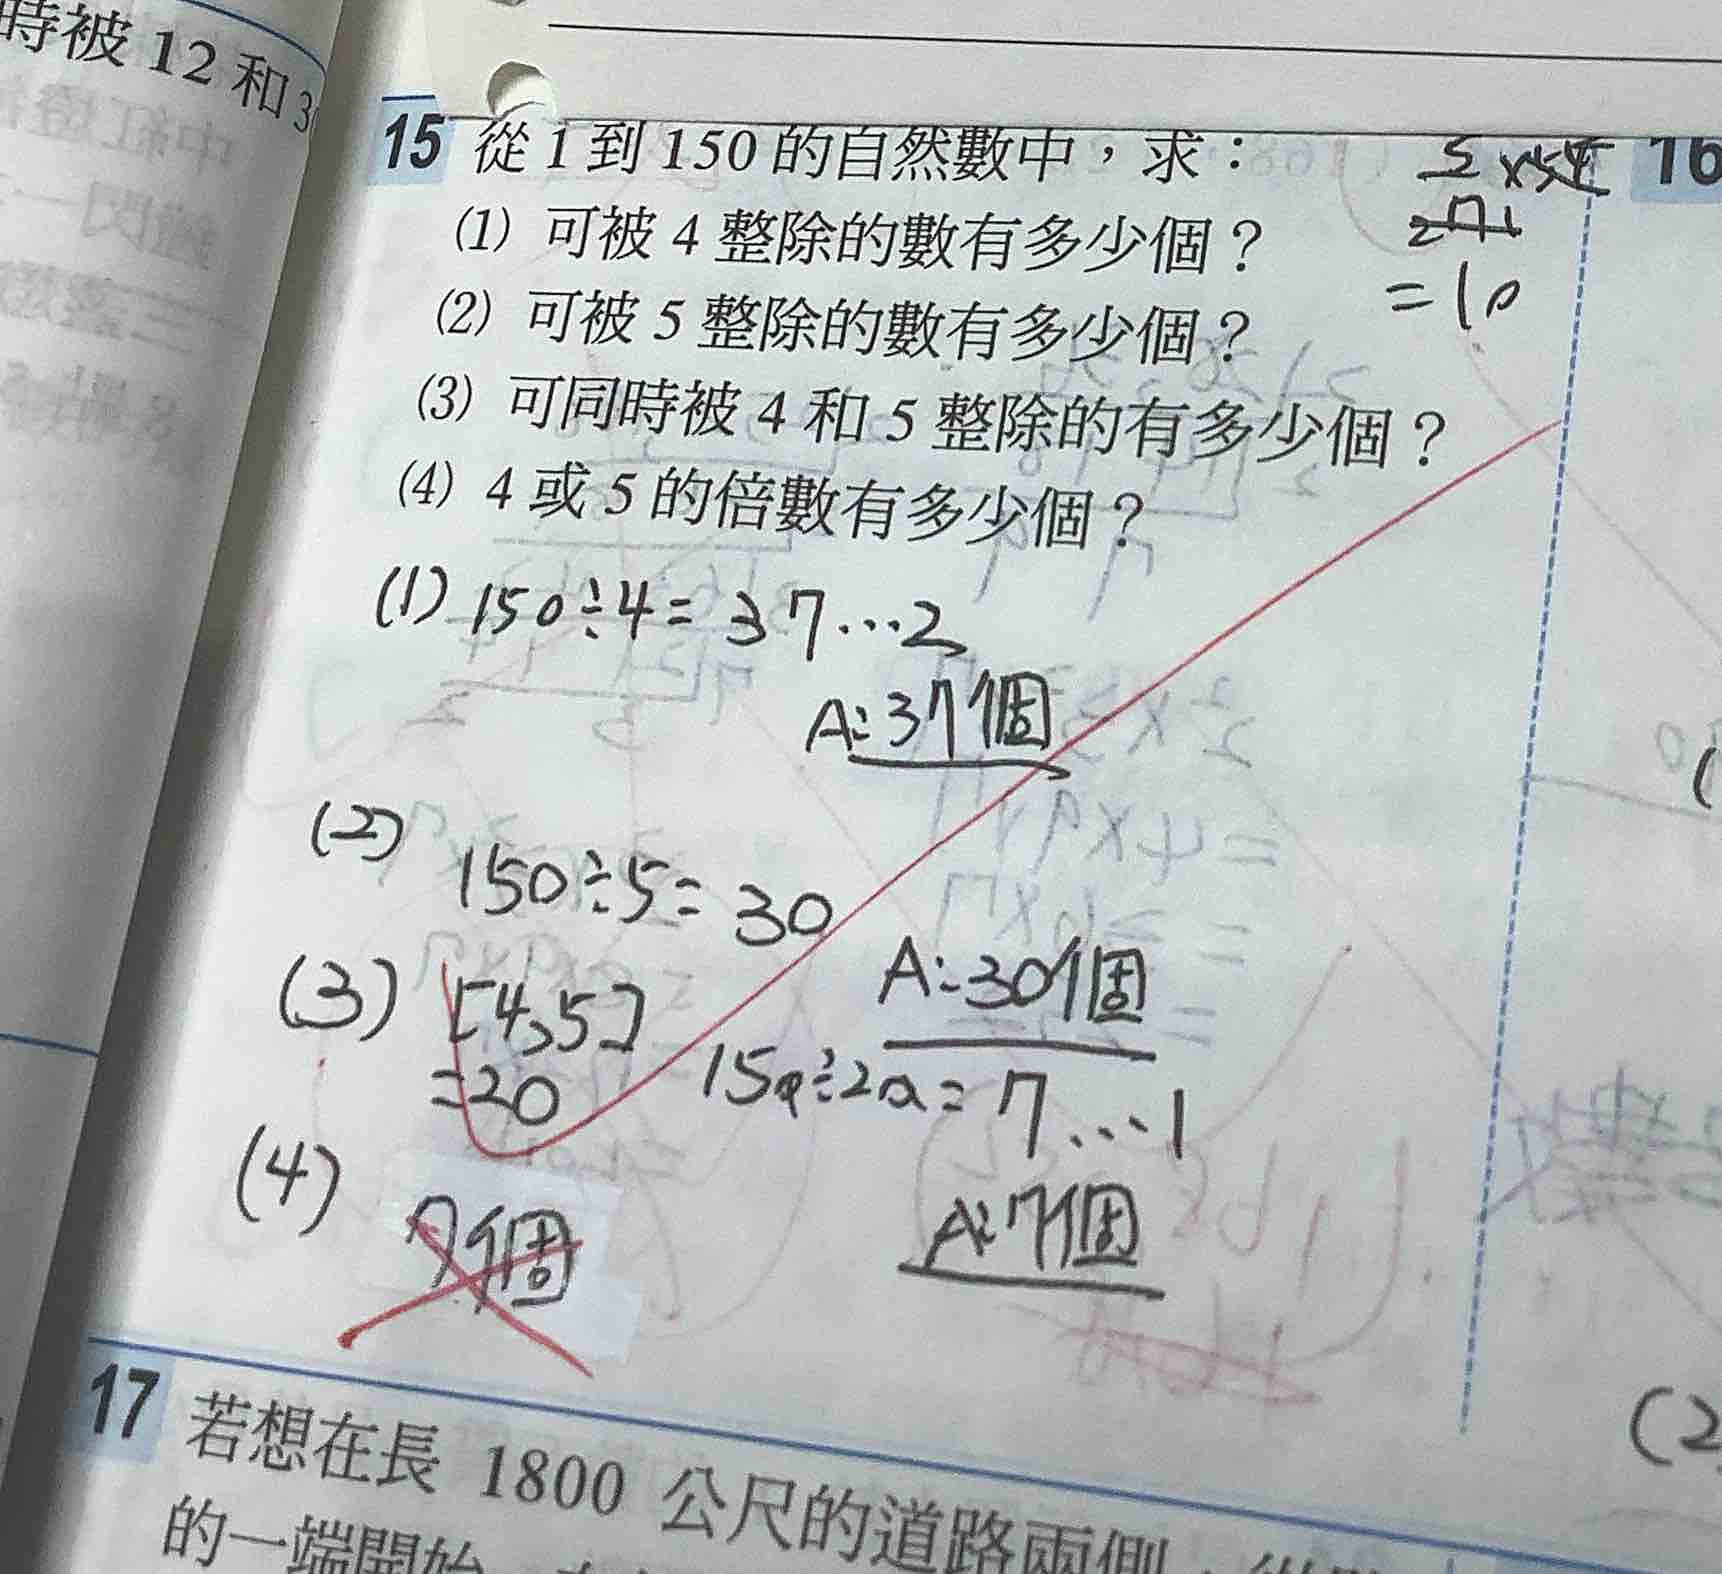 時被 12 和 3
15 從 1 到 150 的自然數中，求：
(1) 可被 4 整除的數有多少個？
(2) 可被 5 整除的數有多少個？
(3) 可同時被 4 和 5 整除的有多少個？
(4) 4 或 5 的倍數有多少個？
=10
16
(1) 150÷4=37…2
A:37個
(2) 150÷5=30
A:30個
(3) [4,5]
=20
150÷20=7…1
A:7個
(4) 7個
(2
17 若想在長 1800 公尺的道路兩側，從
的一端開始